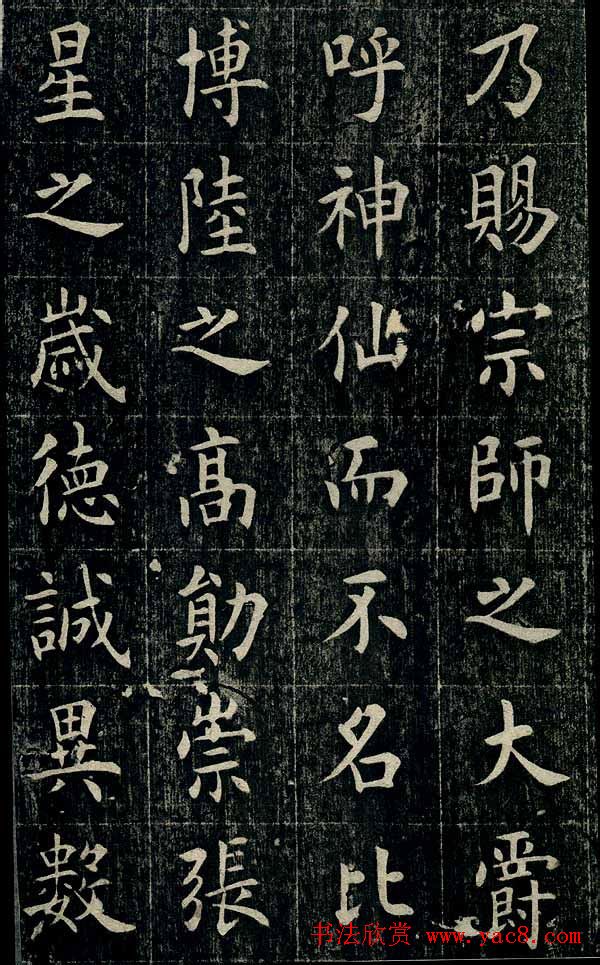 乃賜宗師之大爵
呼神仙而不名比
博陸之高勛崇張
星之歲德誠異數
书法欣赏 www.yac8.com